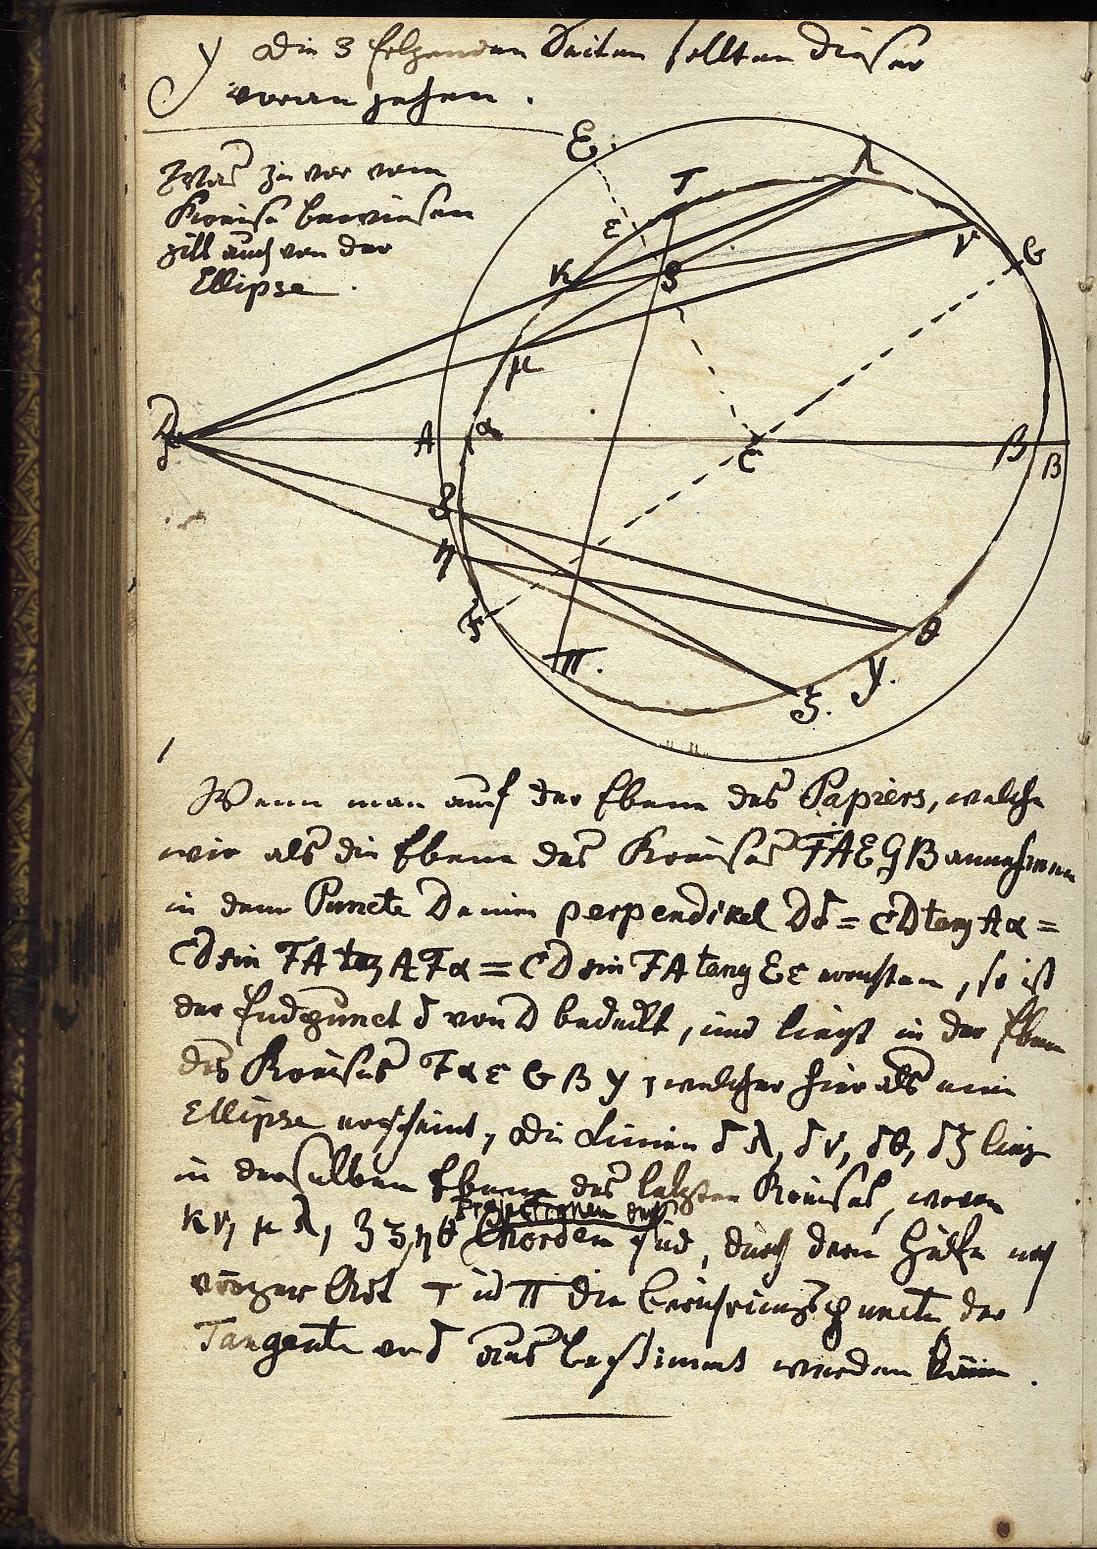 Die 3 folgenden Seiten sollten dieser
voran gehen.
Was zu vor vom
Kreise bewiesen
gilt auch von der
Ellipse.
E
T
λ
ε
ν
G
K
S
μ
D
A
α
C
β
B
η
F
π.
θ
y.
ξ.
Wenn man auf der Ebene des Papiers, welche
wir als die Ebene des Kreises FAEGB annehmen
in dem Puncte D einen perpendikel Dδ = CD tang Aα =
CD sin FA tang AFα = CD sin FA tang Eε errichten, so ist
der Endpunct δ von D bedeckt, und liegt in der Ebene
des Kreises FαεGβy, welcher hier als eine
Ellipse erscheint, die Linien δλ, δν, δθ, δξ lieg
in derselben Ebene des letzten Kreises, wovon
Projectionen
κν, μλ, ηθ Chorden sind, durch deren Hülfe nach
voriger Art T und π die Berührungspuncte der
Tangente von δ aus bestimmt werden können.